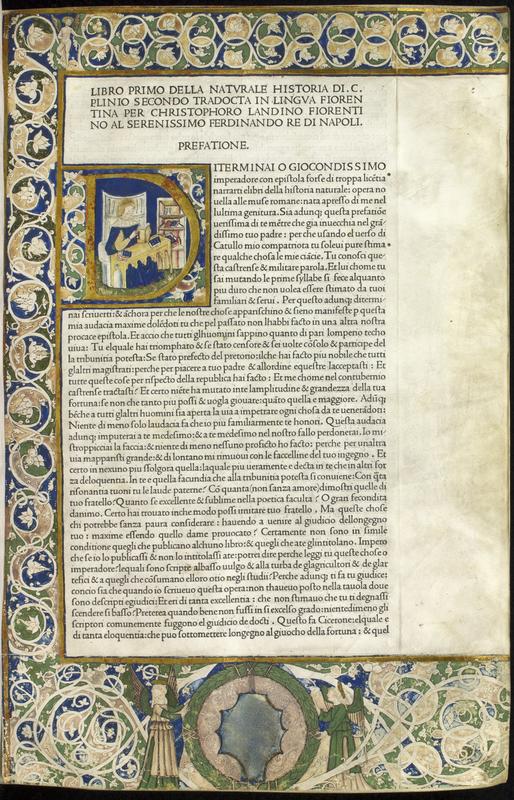 LIBRO PRIMO DELLA NATVRALE HISTORIA DI. C.
PLINIO SECONDO TRADOCTA IN LINGVA FIOREN
TINA PER CHRISTOPHORO LANDINO FIORENTI
NO AL SERENISSIMO FERDINANDO RE DI NAPOLI.
PREFATIONE.
DITERMINAI O GIOCONDISSIMO
imperadore con epistola forse di troppa licétia
narrarti elibri della historia naturale: opera no
uella alle muse romane: nata apresso di me nel
lultima genitura. Sia adunq; questa prefatióe
uerissima di te métre che gia inuecchia nel grã
dissimo tuo padre: per che usando el uerso di
Catullo mio compatriota tu soleui pure stima
re qualche chosa le mie ciácie. Tu conosci que
sta castrense & militare parola. Et lui chome tu
sai mutando le prime syllabe si fece alquanto
piu duro che non uolea essere stimato da tuoi
familiari & serui. Per questo adunq; ditermi
nai scriuerti: & áchora per che le nostre chose apparischino & sieno manifeste p questa
mia audacia maxime dolédoti tu che pel passato non lhabbi facto in una altra nostra
procace epistola. Et accio che tutti glhuomini sappino quanto di pari lompeto techo
uiua: Tu elquale hai triomphato & se stato censore & sei uolte cósolo & participe del
la tribunitia potesta: Se stato prefecto del pretorio: ilche hai facto piu nobile che tutti
glaltri magistrati: perche per piacere a tuo padre & allordine equestre lacceptasti: Et
tutte queste cose per rispecto della republica hai facto: Et me chome nel contubernio
castrense tractasti? Et certo niéte ha mutato inte lamplitudine & grandezza della tua
fortuna: se non che tanto piu possi & uogla giouare: quáto quella e maggiore. Aduq;
béche a tutti glaltri huomini sia aperta la uia a impetrare ogni chosa da te uenerádoti:
Niente di meno solo laudacia fa che io piu familiarmente te honori. Questa audacia
adunq; imputerai a te medesimo: & a te medesimo nel nostro fallo perdonerai. Io mi
stropicciai la faccia: & niente di meno nessuno proficto ho facto: perche per unaltra
uia mapparisti grande: & di lontano mi rimuoui con le faccelline del tuo ingegno. Et
certo in nexuno piu sfolgora quella: laquale piu ueramente e decta in te che in altri for
za deloquentia. In te e quella facundia che alla tribunitia potesta si conuiene: Con q̃ta
risonantia tuoni tu le laude paterne? Có quanta (non sanza amore) dimostri quelle di
tuo fratello? Quanto se excellente & sublime nella poetica faculta? O gran fecondita
danimo. Certo hai trouato inche modo possi imitare tuo fratello. Ma queste chose
chi potrebbe sanza paura considerare: hauendo a uenire al giudicio dellongegno
tuo: maxime essendo quello dame prouocato? Certamente non sono in simile
conditione quegli che publicano alchuno libro: & quegli che ate glintitolano. Impero
che se io lo publicassi & non lo intitolassi ate: potrei dire perche leggi tu queste chose o
imperadore? lequali sono scripte albasso uulgo & alla turba de glagricultori & de glar
tefici & a quegli che cósumano elloro otio negli studii? Perche adunq; ti fa tu giudice:
concio sia che quando io scriueuo questa opera: non thaueuo posto nella tauola doue
sono descripti egiudici: Eteri di tanta excellentia: che non stimauo che tu ti degnassi
scendere si basso? Preterea quando bene non fussi in si excelso grado: nientedimeno gli
scriptori comunemente fuggono el giudicio de docti. Questo fa Cicerone: elquale e
di tanta eloquentia: che puo sottomettere longegno al giuocho della fortuna: & quel